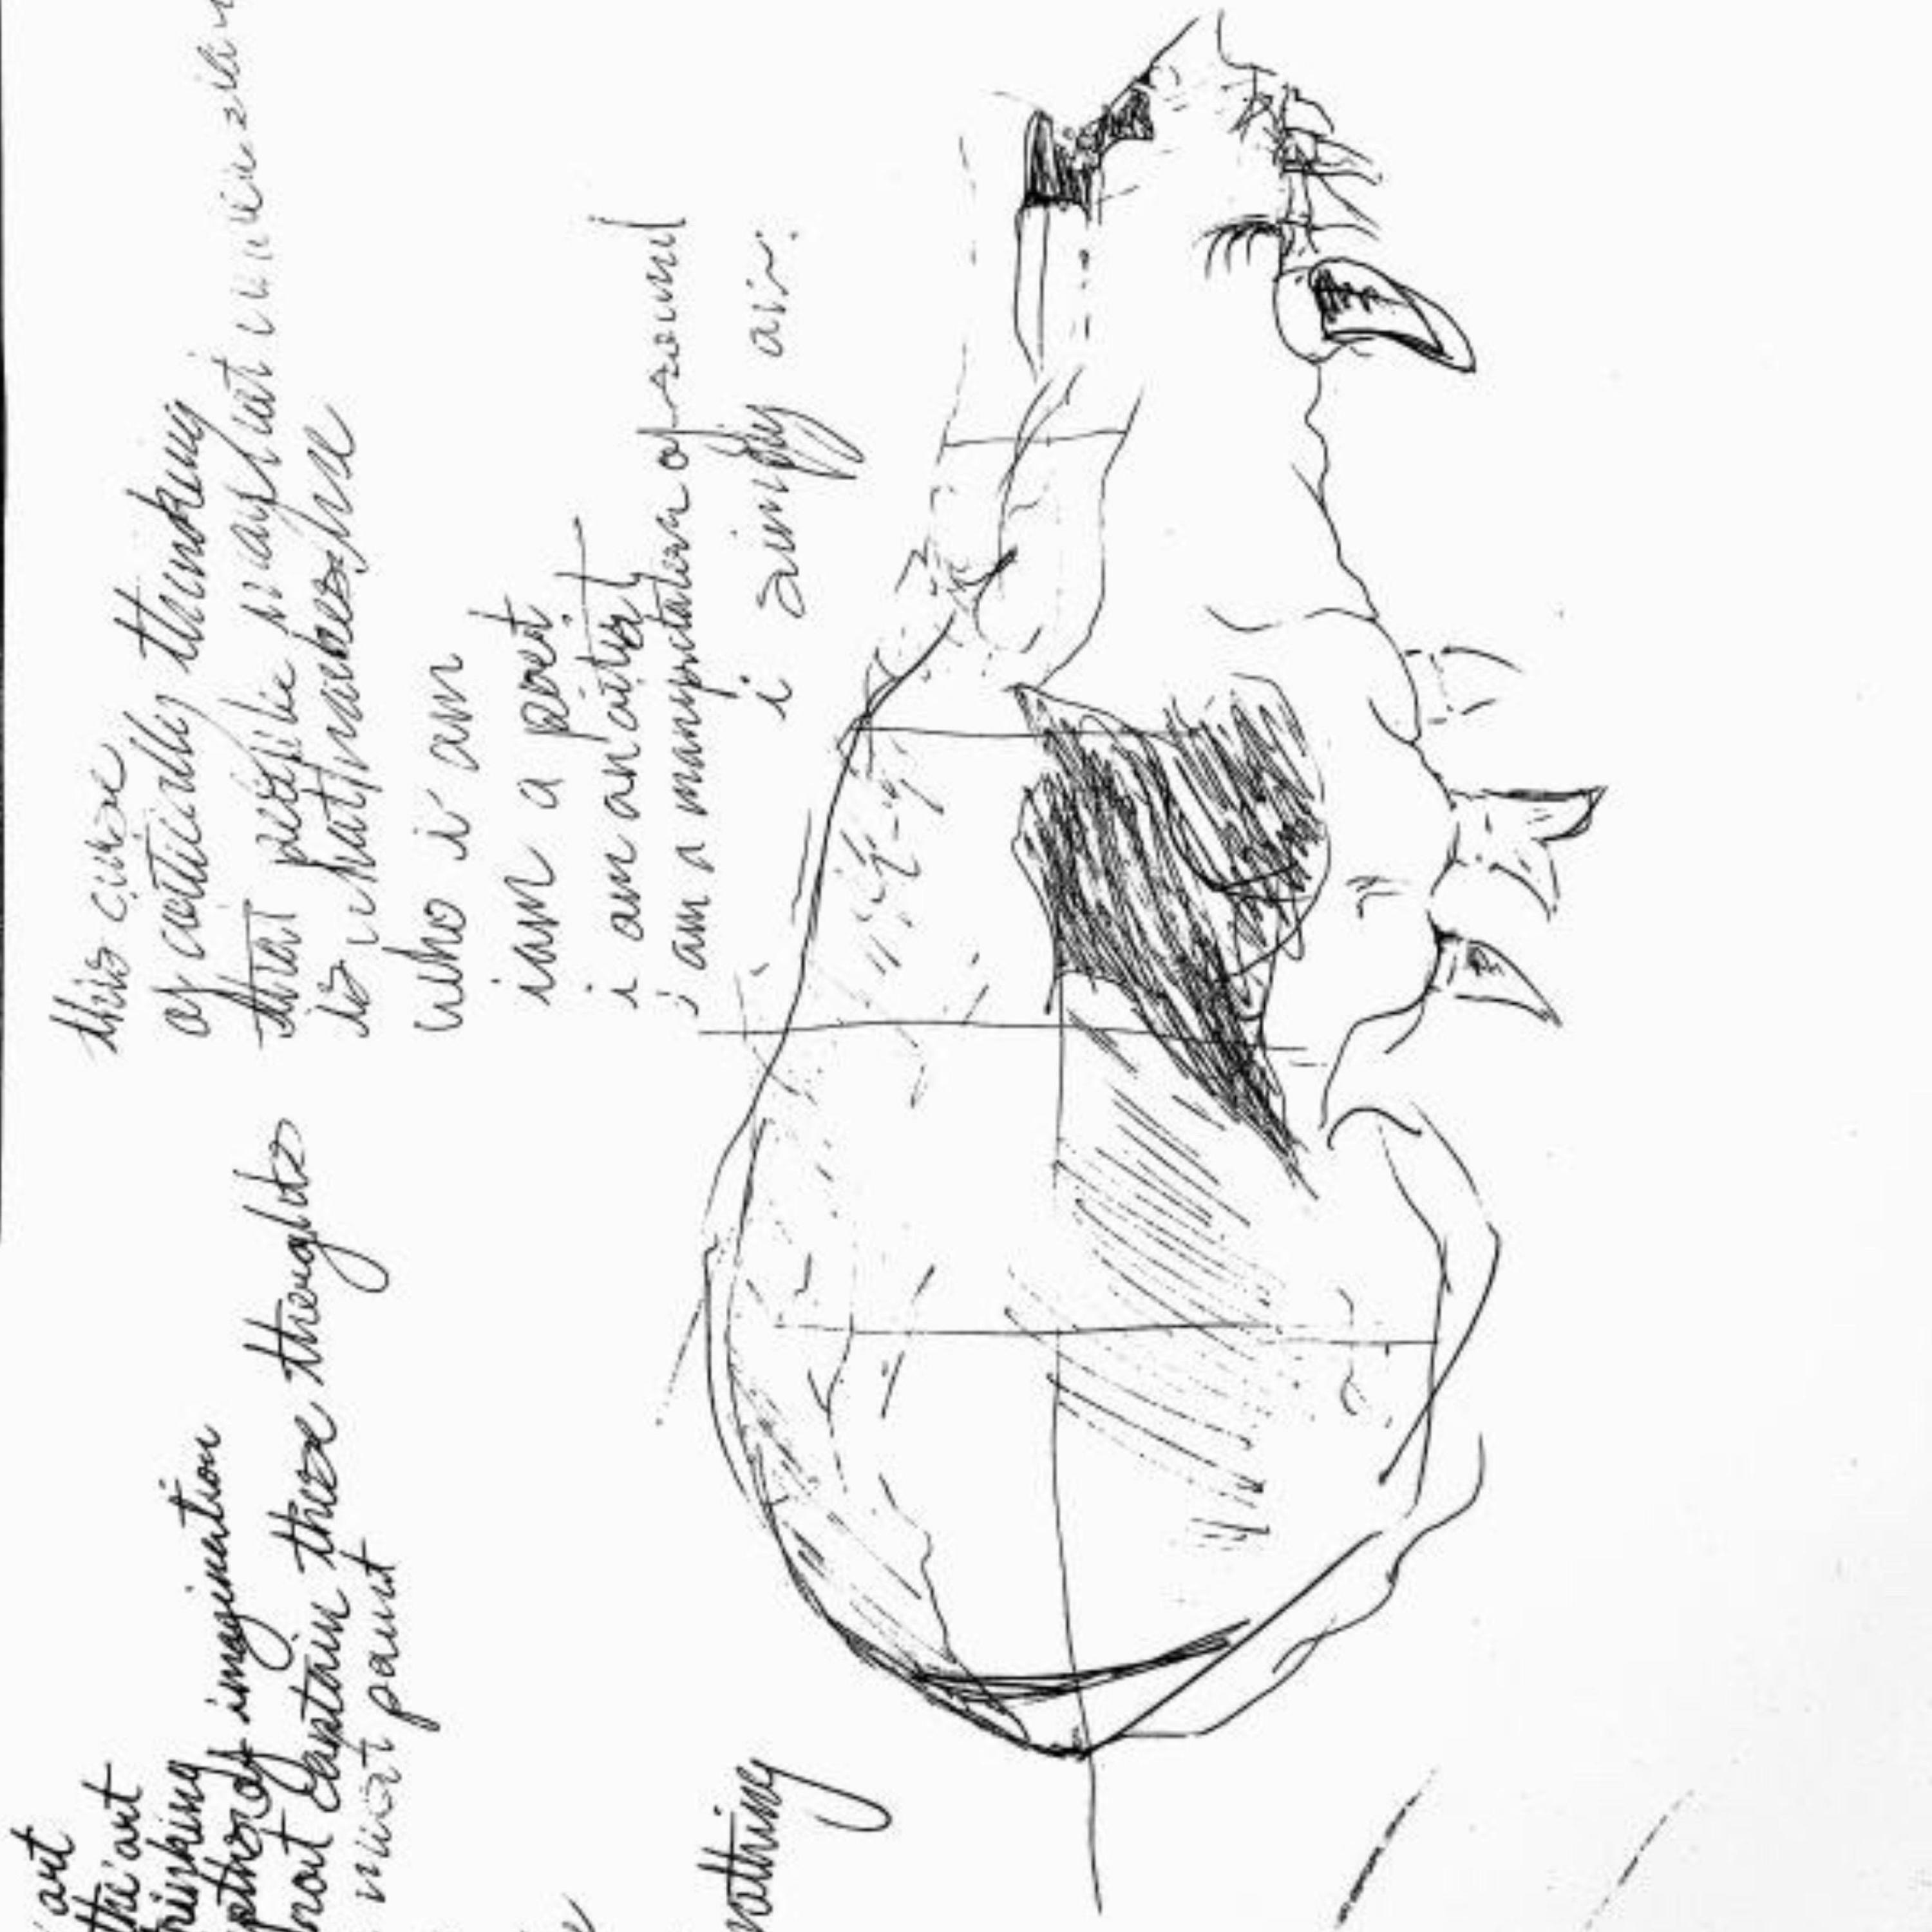 this curse
of continually thinking
that people say that
is what makes me
who i am
i am a poet
i am an artist
i am a manipulator of sound
i simply air.
art
the art
thinking
depths of imagination
not contain these thoughts
must paint
nothing